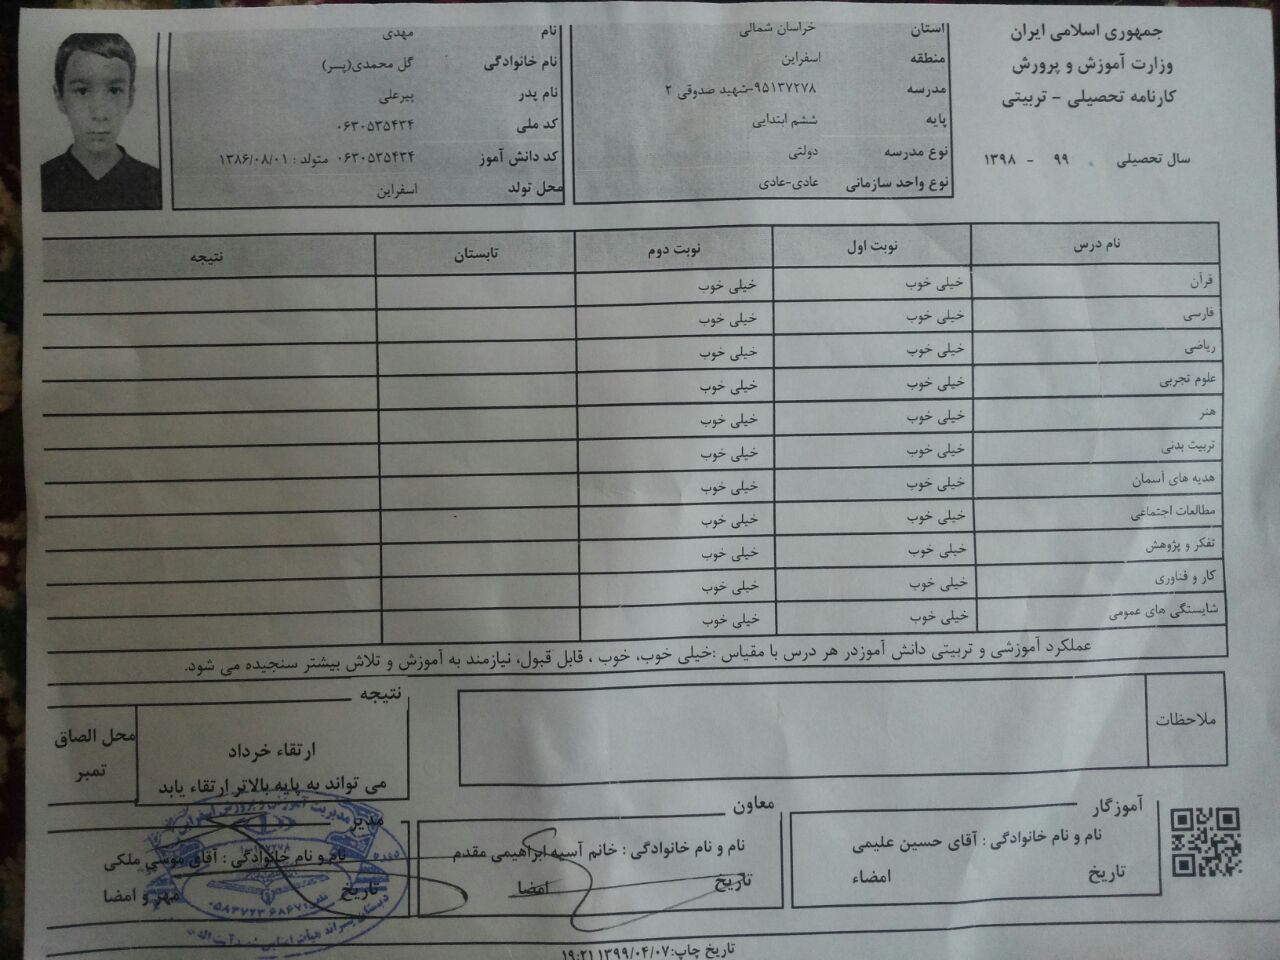 جمهوری اسلامی ایران
وزارت آموزش و پرورش
کارنامه تحصیلی - تربیتی
سال تحصیلی ۹۹ - ۱۳۹۸
استان خراسان شمالی
منطقه اسفراین
مدرسه ۹۵۱۳۷۲۷۸-شهید صدوقی ۲
پایه ششم ابتدایی
نوع مدرسه دولتی
نوع واحد سازمانی عادی-عادی
نام مهدی
نام خانوادگی گل محمدی(پسر)
نام پدر پیرعلی
کد ملی ۰۶۳۰۵۳۵۴۳۴
کد دانش آموز ۰۶۳۰۵۳۵۴۳۴ متولد : ۱۳۸۶/۰۸/۰۱
محل تولد اسفراین
نام درس نوبت اول نوبت دوم تابستان نتیجه
قرآن خیلی خوب خیلی خوب
فارسی خیلی خوب خیلی خوب
ریاضی خیلی خوب خیلی خوب
علوم تجربی خیلی خوب خیلی خوب
هنر خیلی خوب خیلی خوب
تربیت بدنی خیلی خوب خیلی خوب
هدیه های آسمان خیلی خوب خیلی خوب
مطالعات اجتماعی خیلی خوب خیلی خوب
تفکر و پژوهش خیلی خوب خیلی خوب
کار و فناوری خیلی خوب خیلی خوب
شایستگی های عمومی خیلی خوب خیلی خوب
عملکرد آموزشی و تربیتی دانش آموزدر هر درس با مقیاس :خیلی خوب، خوب ، قابل قبول، نیازمند به آموزش و تلاش بیشتر سنجیده می شود.
ملاحظات
نتیجه
ارتقاء خرداد
می تواند به پایه بالاتر ارتقاء یابد
محل الصاق
تمبر
آموزگار
نام و نام خانوادگی : آقای حسین علیمی
تاریخ امضاء
معاون
نام و نام خانوادگی : خانم آسیه ابراهیمی مقدم
تاریخ امضا
مدیر
نام و نام خانوادگی : آقای موسی ملکی
تاریخ مهر و امضا
مدیریت آموزش و پرورش اسفراین
تاریخ چاپ:۱۳۹۹/۰۴/۰۷ ۱۹:۲۱